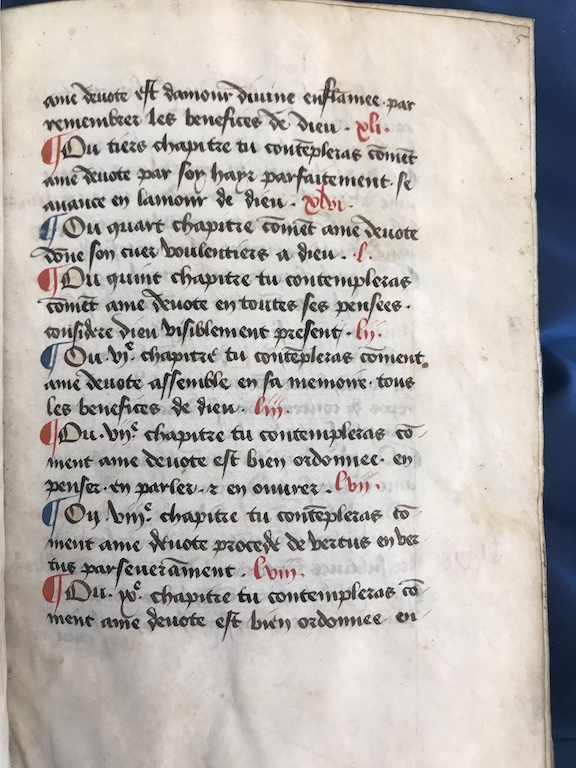 5
ame deuote est damour diuine enflamee · par
remembrer les benefices de dieu · xli ·
¶ Ou tiers chapitre tu contẽpleras cõmẽt
ame deuote par soy hayr parfaitement · se
auance en lamour de dieu · xlvi ·
¶ Ou quart chapitre cõmẽt ame deuote
dõne son cuer voulentiers a dieu · l ·
¶ Ou quint chapitre tu contempleras
cõmẽt ame deuote en toutes ses pensees ·
considere dieu visiblement present · lii ·
¶ Ou · viᵉ · chapitre tu contẽpleras cõment
ame deuote assemble en sa memoire · tous
les benefices de dieu · liii ·
¶ Ou · viiᵉ · chapitre tu contempleras cõ
ment ame deuote est bien ordonnee · en
penser · en parler · ⁊ en ouurer · lvii ·
¶ Ou · viiiᵉ · chapitre tu contẽpleras cõ
ment ame deuote procede de vertus en ver
tus parseuerãment · lviii ·
¶ Ou · ixᵉ · chapitre tu contempleras cõ
ment ame deuote est bien ordonnee en